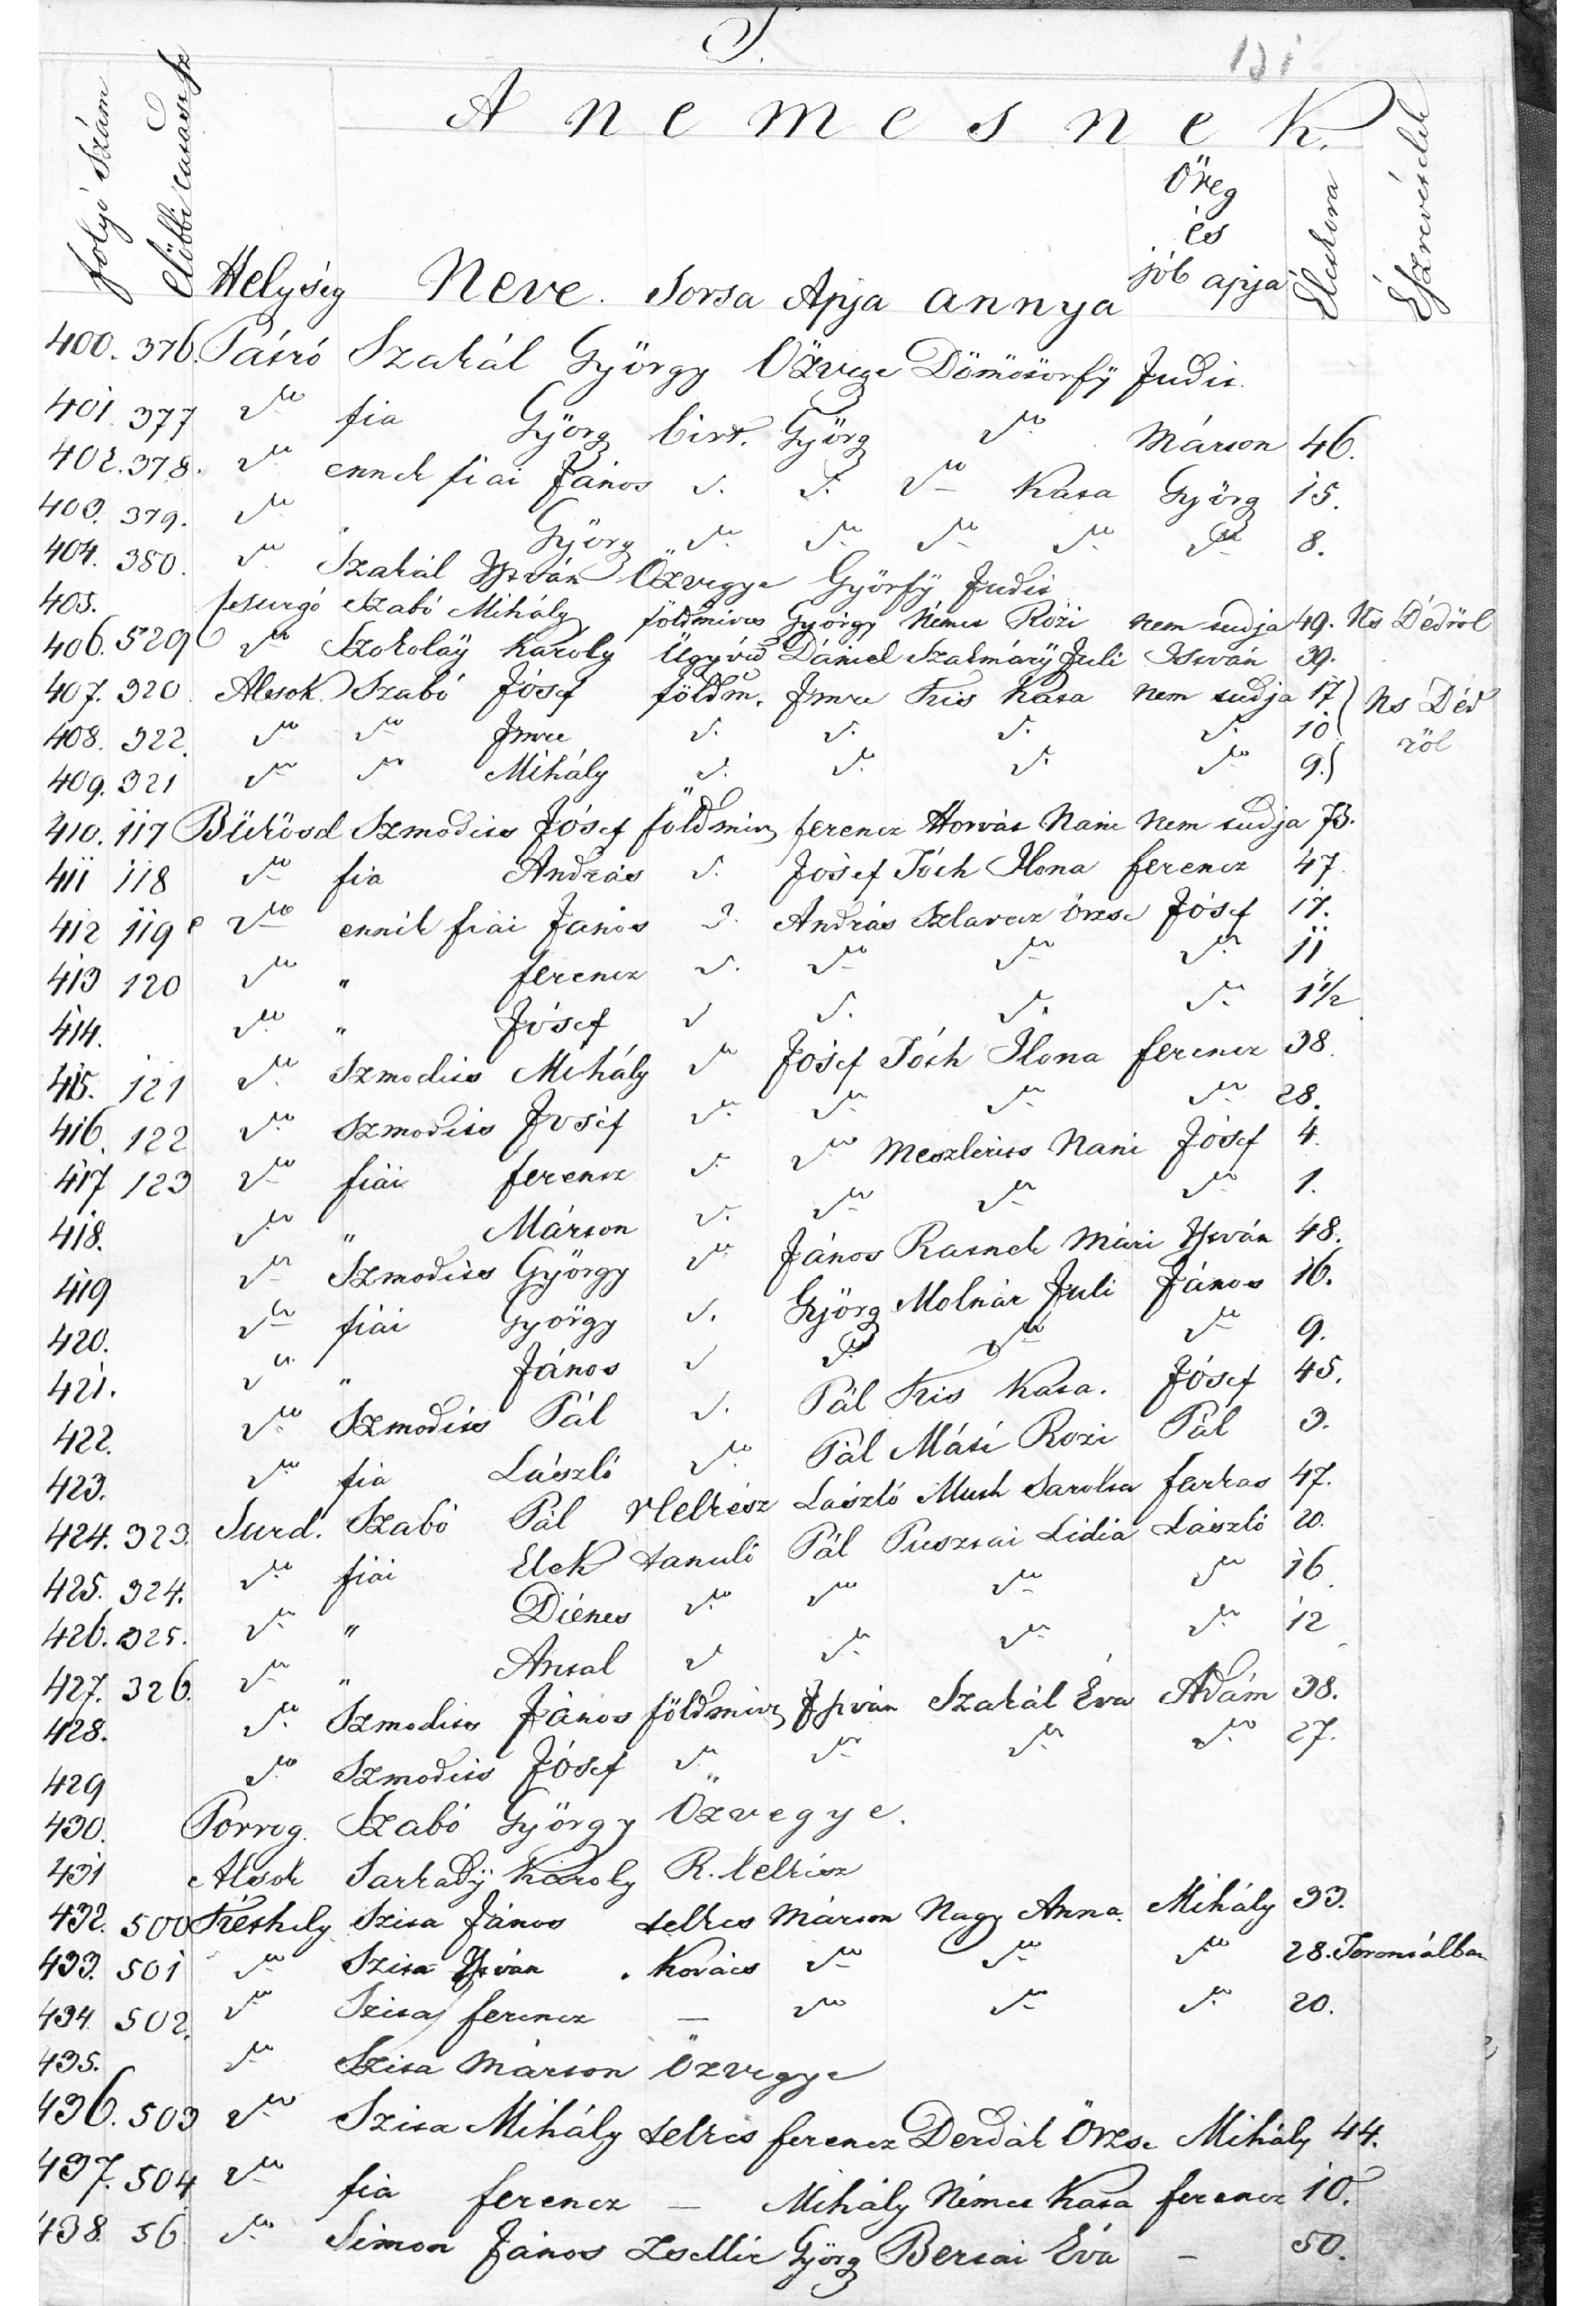 S.
A nemesnek.
folyó szám
Helység Neve. Sorsa Apja annya Öreg és jób apja Élet kora Észrevételek
400. 376. Pátró Szakál György Özvege Dömötörfÿ Judit.
401. 377 do fia Györg birt. Györg do Márton 46.
402. 378. do ennek fiai János d. d. do Kata Györg 15.
403. 379. do Györg do do do do do 8.
404. 380. do Szakál István Özvegye Györfÿ Judit
405. Csurgó Szabó Mihály földmives György Német Rózi nem tudja 49. Ns Dédröl
406. 529 do Szokolaÿ Károly Ügyvéd Dániel Szatmárÿ Juli István 39.
407. 320 Alsok. Szabó Jósef földm. Imre Kis Kata nem tudja 17 Ns Déd
408. 322. do do Imre d. d. d. d. 10 röl
409. 321 do do Mihály d. d. d. do 9.
410. 117 Bükösd Szmodits Jósef földmiv ferencz Horvát Nani nem tudja 73.
411 118 do fia András d. Jósef Tóth Ilona ferencz 47
412 119 do ennek fiai János d. András Szlavecz Örzse Jósef 17.
413 120 do " ferencz d. do do do 11
414. do " Jósef d d. d. do 1 1/2
415. 121 do Szmodits Mihály do Jósef Tóth Ilona ferencz 38.
416. 122 do Szmodits Josef do do do do 28.
417 123 do fiai ferencz d. do Meszlerits Nani Jósef 4.
418. do " Márton d. do do do 1.
419 do Szmodits György do János Ratnek Mári István 48.
420. do fiai György d. Györg Molnár Juli János 16.
421. do " János d do do do 9.
422. do Szmodits Pál d. Pál Kis Kata. Jósef 45.
423. do fia László do Pál Máté Rozi Pál 3.
424. 323. Surd. Szabó Pál Helkész László Muth Sarolta farkas 47.
425. 324. do fiai Elek tanuló Pál Pusztai Lidia László 20.
426. 325. do " Diénes do do do do 16
427. 326. do " Antal d do do do 12
428. do Szmodits János földmiv István Szakál Éva Adám 38.
429 do Szmodits Jósef do do do do 27.
430. Porrog. Szabó György Özvegye.
431 Alsok Sarkadÿ Károly R. lelkész
432. 500 Kéthely Szita János telkes Márton Nagy Anna. Mihály 33.
433. 501 do Szita István . Kovács do do do 28. Torontálban
434. 502. do Szita ferencz – do do do 20.
435. do Szita Márton Özvegye
436. 503 do Szita Mihály telkes ferencz Derdák Örzse Mihály 44.
437. 504 do fia ferencz – Mihály Német Kata ferencz 10.
438. 56. do Simon János zsellér Györg Bertai Éva – 50.